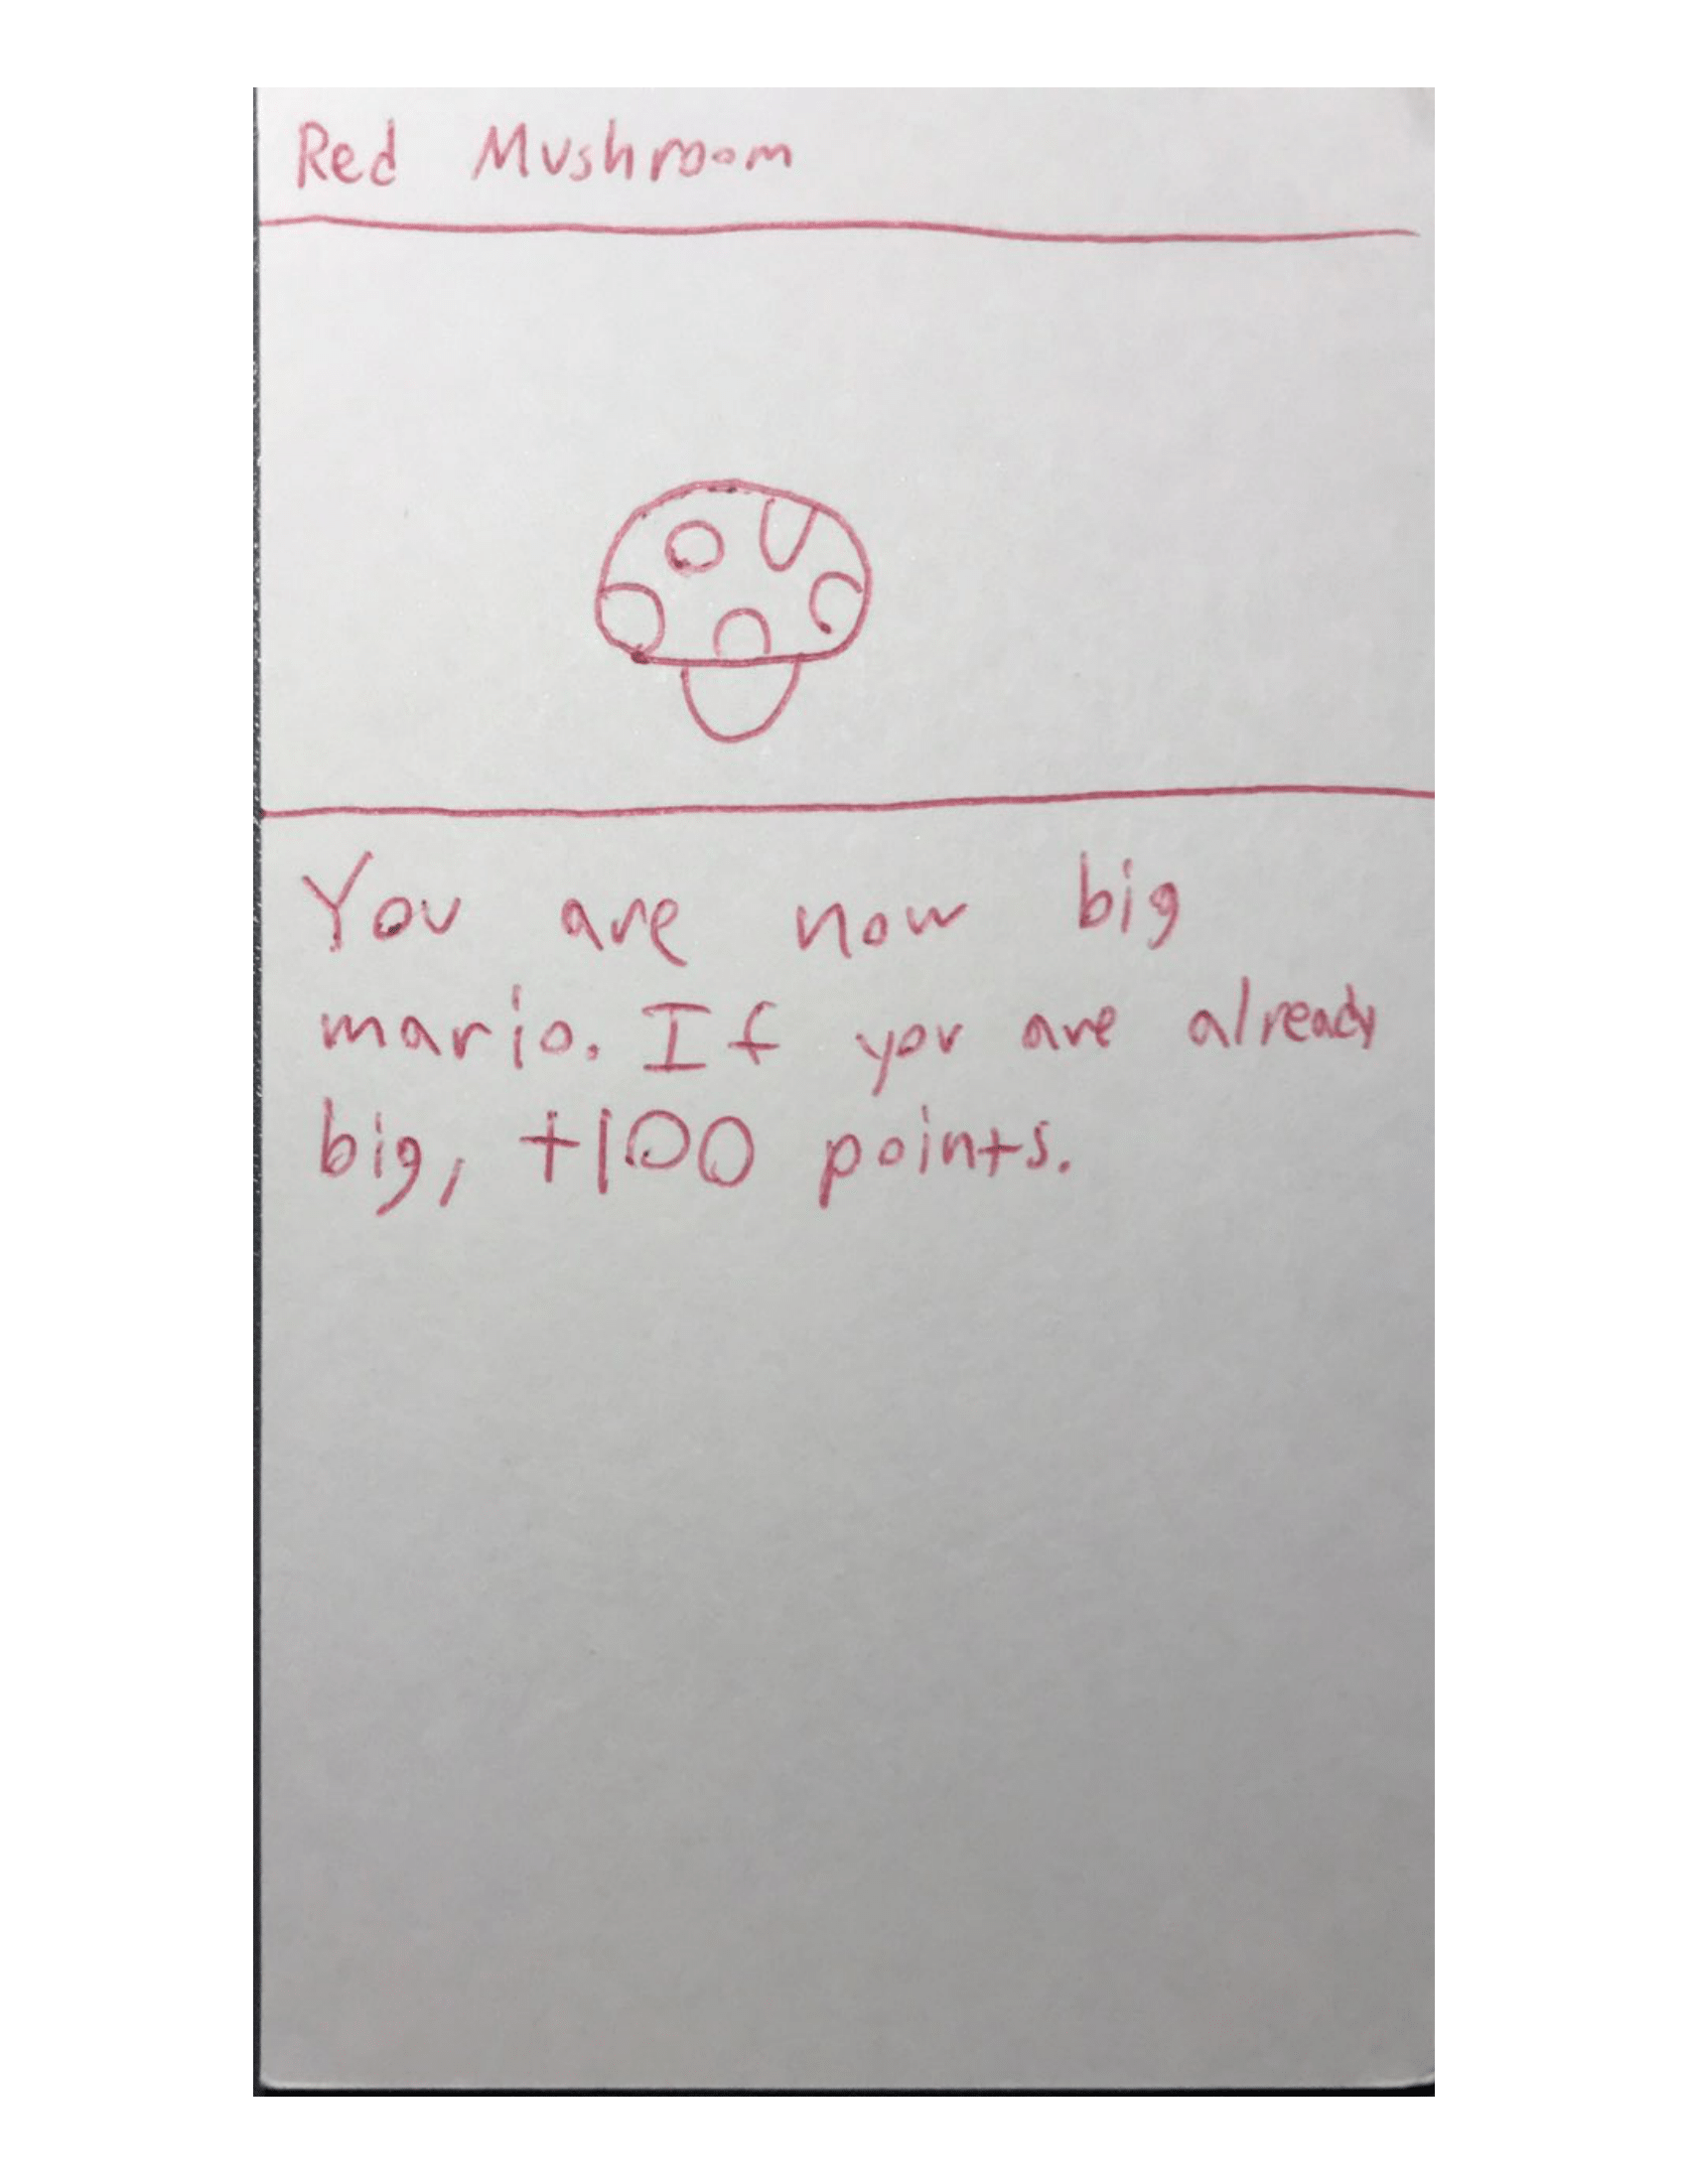 Red Mushroom
You are now big
mario. If you are already
big, +100 points.